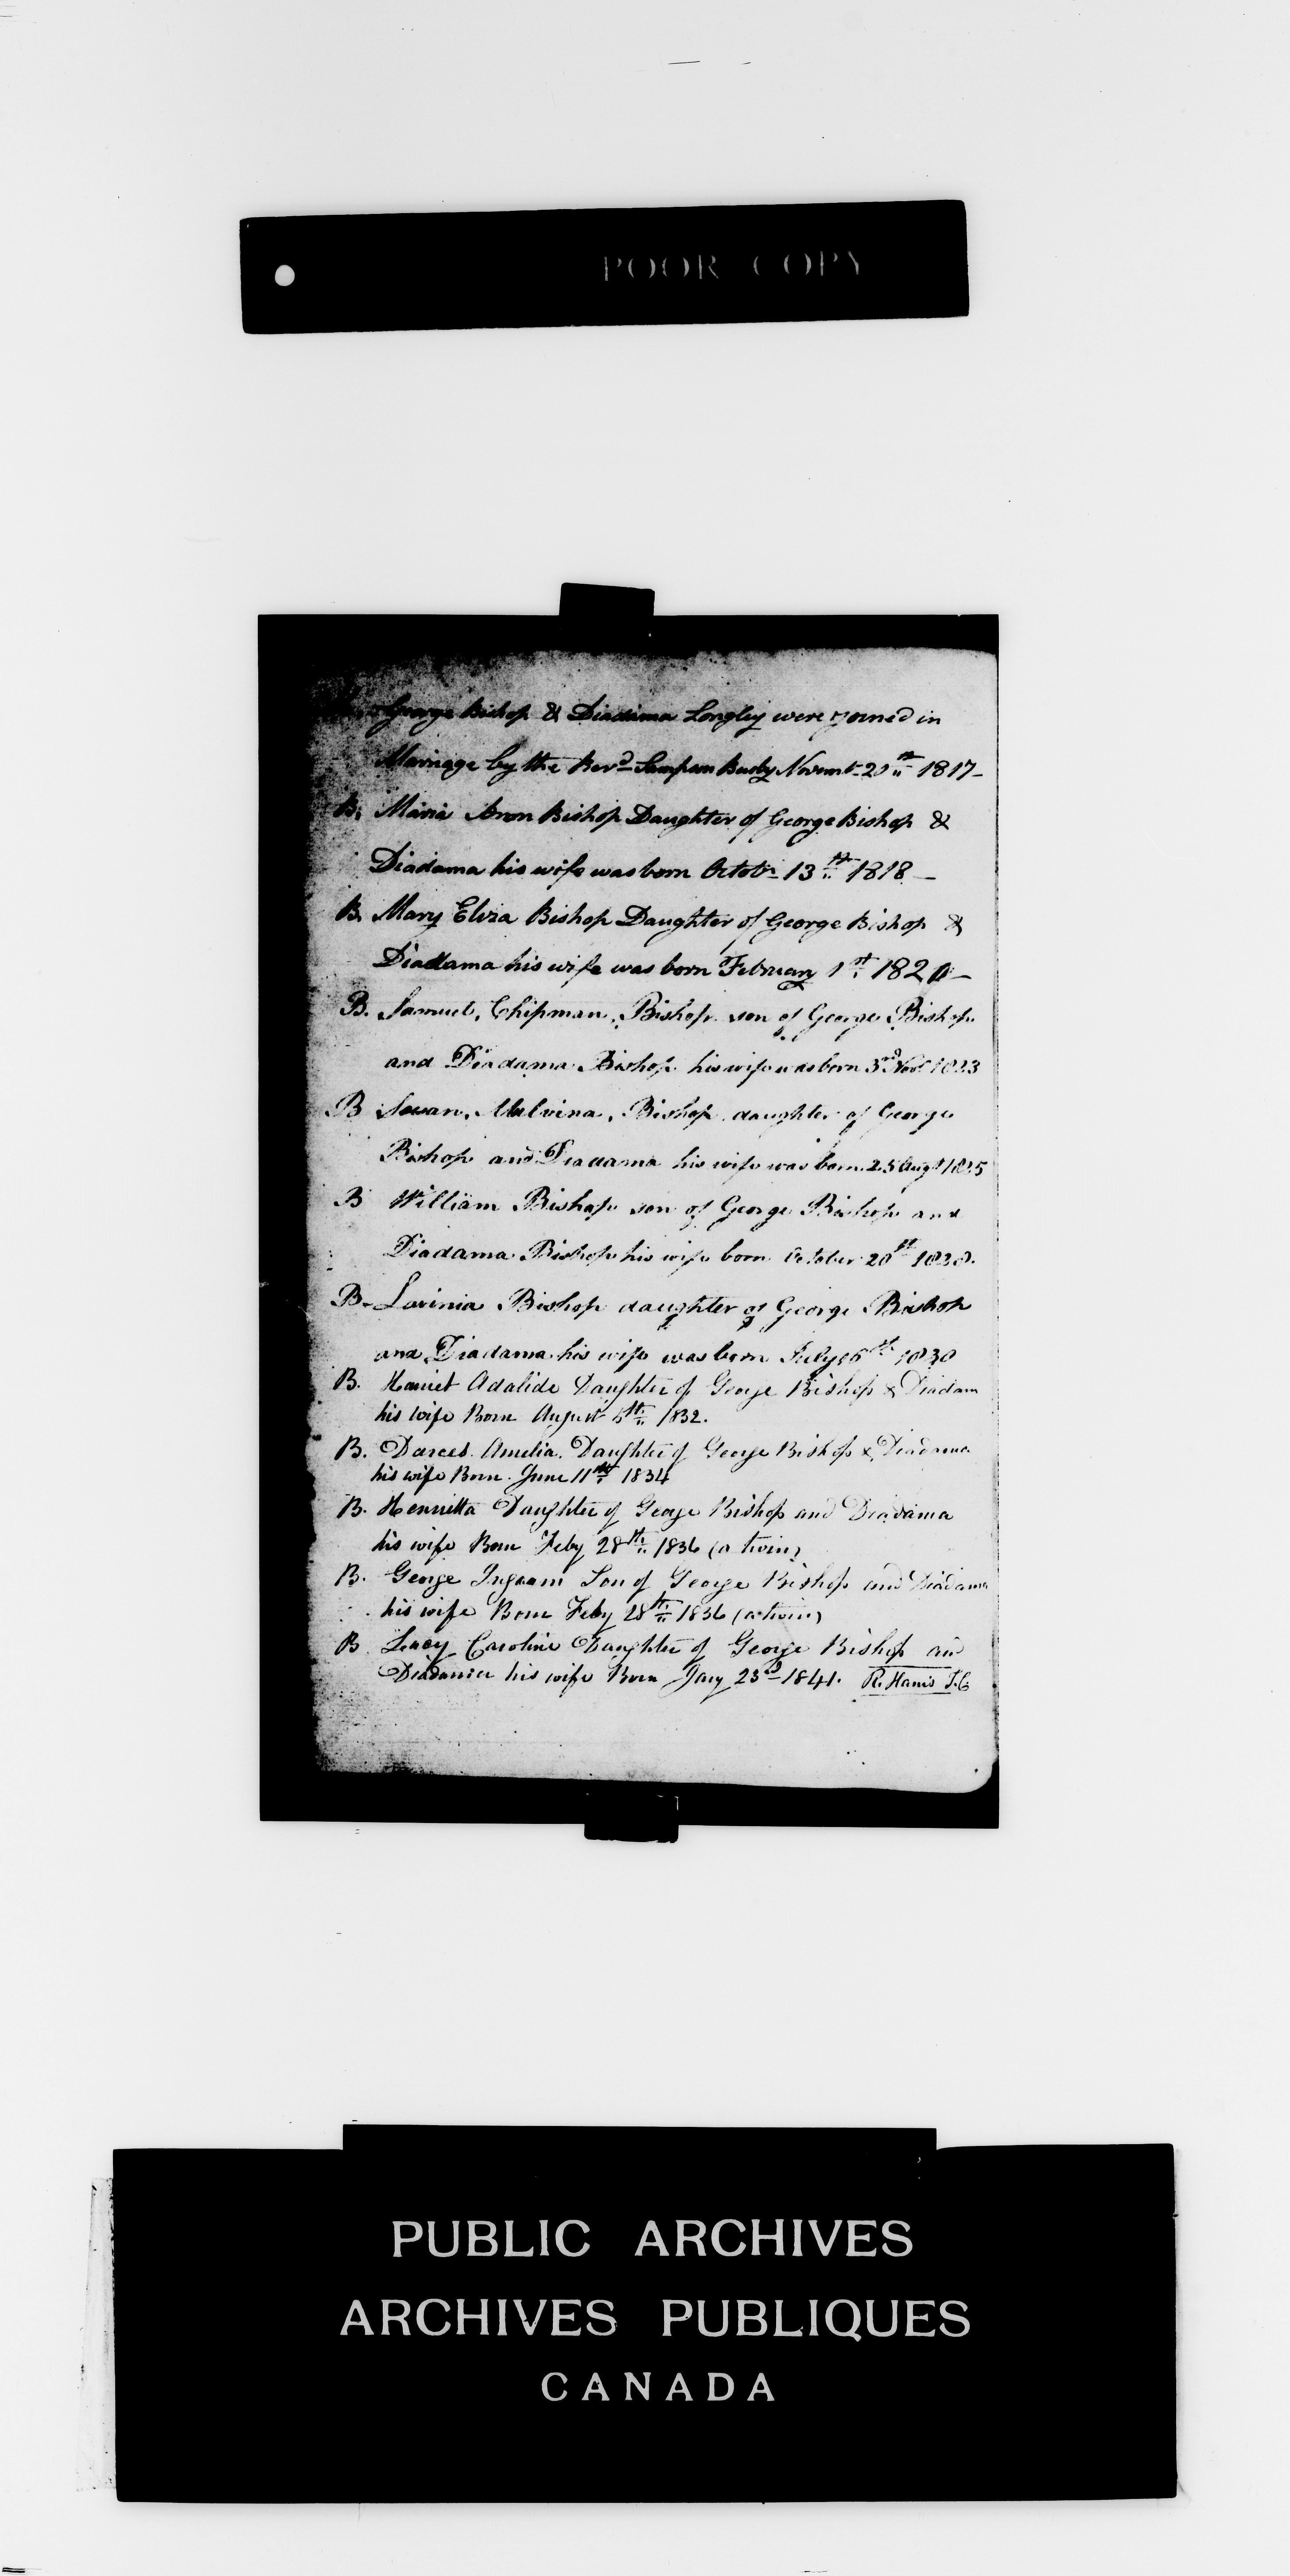 POOR COPY
George Bishop & Diadama Longley were joined in
Marriage by the Revd Sampson Busby Novemr 20th 1817-
B. Maria Aron Bishop Daughter of George Bishop &
Diadama his wife was born Octobr 13th 1818-
B. Mary Eliza Bishop Daughter of George Bishop &
Diadama his wife was born February 1st 182
B. Samuel, Chipman, Bishop son of George Bishop
and Diadama Bishop his wife was born 3rd Novr 1823
B Sousan, Malvina, Bishop daughter of George
Bishop and Diadama his wife was born 25 Augt 1825
B William Bishop son of George Bishop and
Diadama Bishop his wife born October 28
B- Lavinia Bishop daughter of George Bishop
and Diadama his wife was born July 1830
B. Harriet Adalide Daughter of George Bishop & Diadam
his wife Born August 5th 1832.
B. Darces Amelia Daughter of George Bishop & Diadama
his wife Born June 11th 1834
B. Henrietta Daughter of George Bishop and Diadama
his wife Born Feby 28th 1836 (a twin)
B. George Ingram Son of George Bishop and Diadama
his wife Born Feby 28th 1836 (a twin)
B Lucy Caroline Daughter of George Bishop and
Diadama his wife Born Jany 23d 1841. R. Harris T.C
PUBLIC ARCHIVES
ARCHIVES PUBLIQUES
CANADA